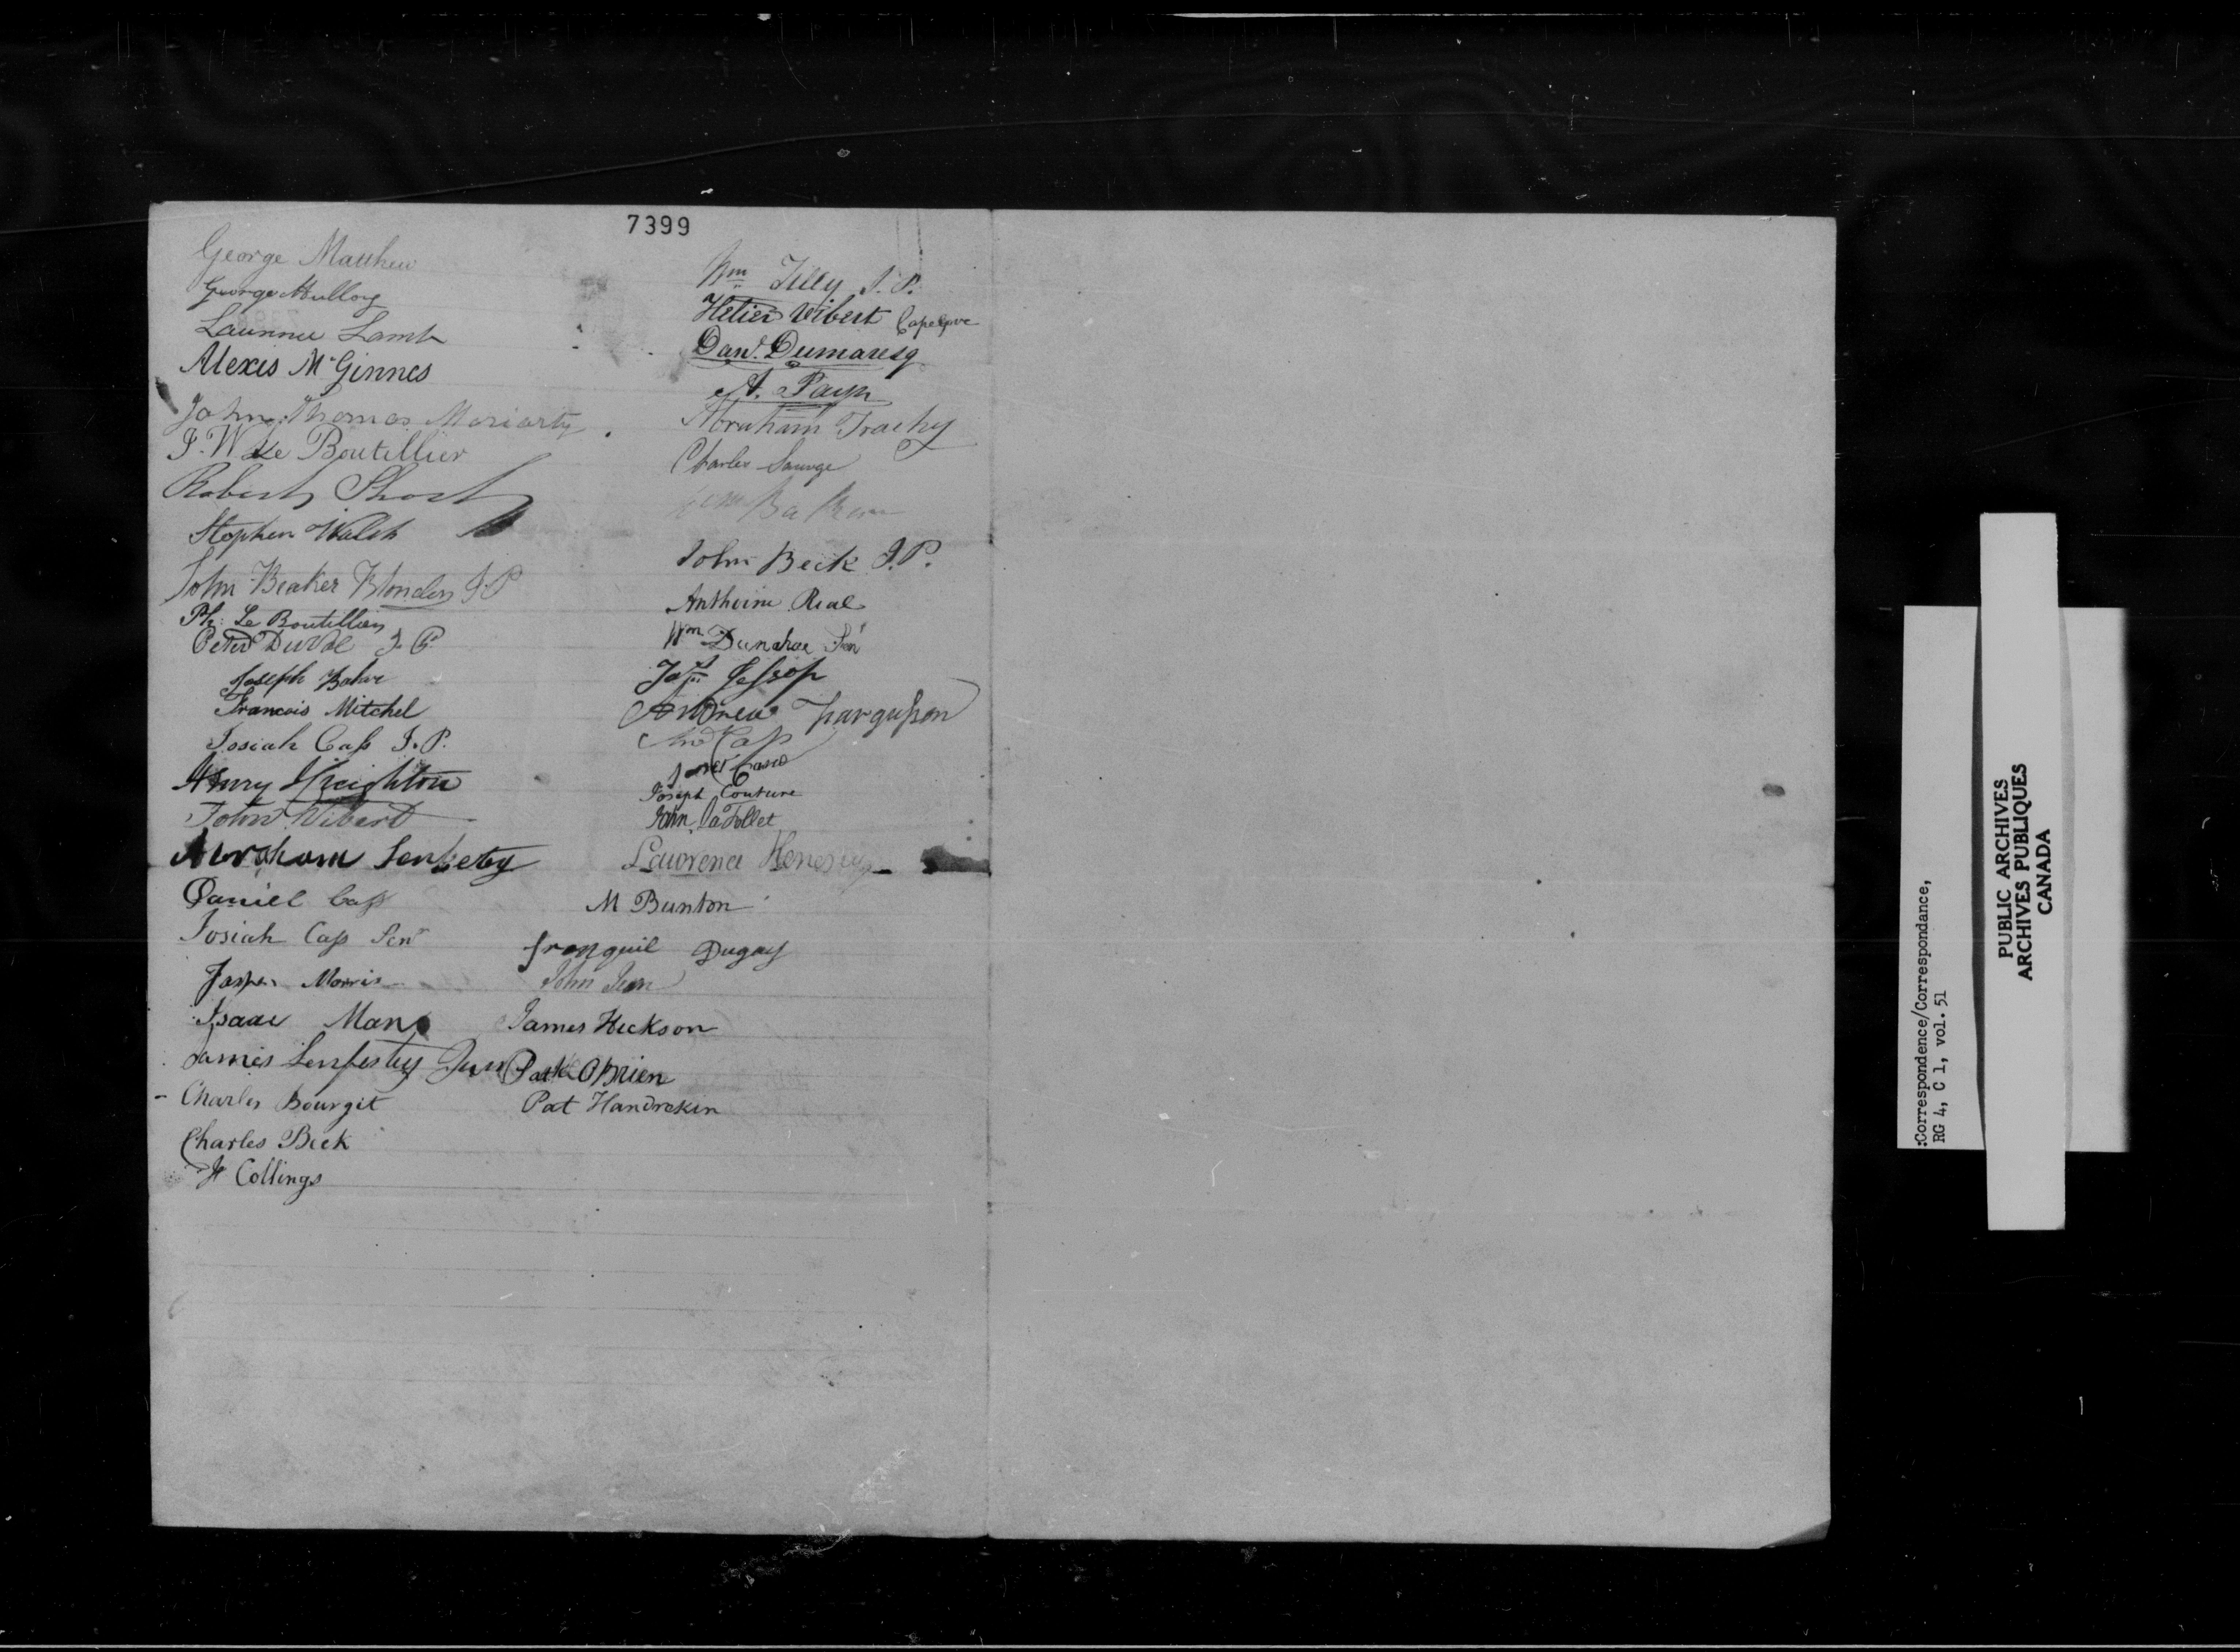 7399
George Matthew
George Mullong
Laurence Lamb
Alexis McGinnes
John Thomas Moriarty
J. W. Le Boutillier
Robert Short
Stephen Walsh
John Beaker Blonden J.P
Ph: Le Boutillier
Peter Duval J.P.
Joseph
Francois Mitchel
Josiah Cass J.P.
Henry Kreighton
John Vibert
Abraham Lenfesty
Daniel Cass
Josiah Cass Senr
Jasper Morris
Isaac Man
James Lenfestey Junr
Charles Bourgit
Charles Beck
H Collings
Wm Tilly J.P.
Helier Vibert Cape Cove
Danl. Dumaresq
A. Payn
Abraham Trachy
Charles Savage
John Beck J.P.
Anthoine Real
Wm Dunahue Senr
Jas Jessop
Andrew Fargusson
Cass
Joseph Couture
John La Follet
Lawrence Henesey
M Bunton
Tranquil Dugay
John
James Hickson
Patk OBrien
Pat Handreken
:Correspondence/Correspondance,
RG 4, C 1, vol. 51
PUBLIC ARCHIVES
ARCHIVES PUBLIQUES
CANADA